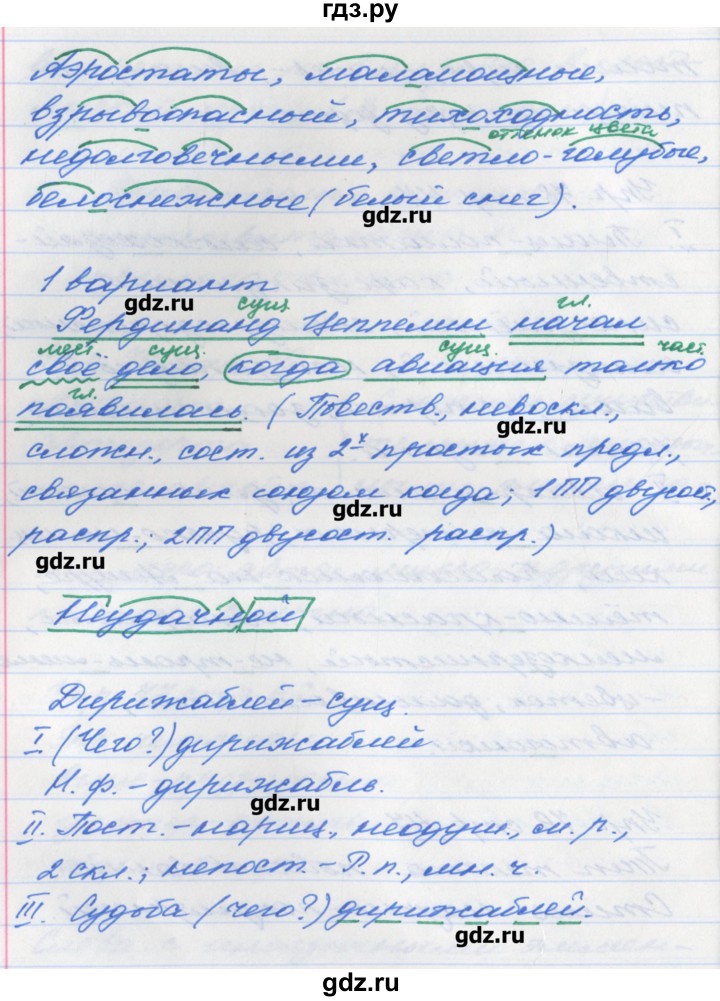 гдз.ру
Аэростаты, маломощные,
взрывоопасный, тихоходность,
оттенок цвета
недолговечными, светло-голубые,
белоснежные (белый снег).
gdz.ru
1 вариант
gdz.ru
сущ. гл.
Фердинанд Цеппелин начал
мест. сущ. сущ. част.
своё дело, когда авиация только
гл.
появилась (Повеств., невоскл.,
gdz.ru
сложн., сост. из 2х простых предл.,
связанных союзом когда; 1ПП двусост.,
gdz.ru
распр.; 2ПП двусост. распр.)
gdz.ru
Неудачной
Дирижаблей – сущ.
I (Чего?) дирижаблей
Н. ф. – дирижабль.
gdz.ru
II. Пост. – нариц., неодуш., м. р.,
2 скл.; непост. – Р. п., мн. ч.
III. Судьба (чего?) дирижаблей.
gdz.ru
gdz.ru